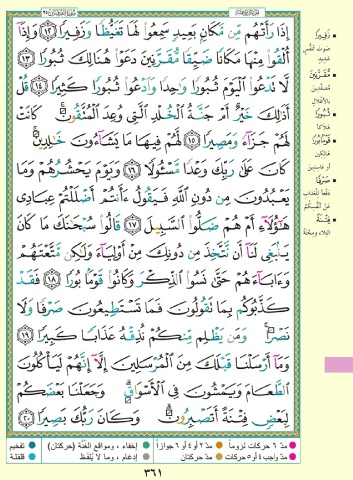 سُورَةُ الفُرْقَان ٢٥
إِذَا رَأَتْهُم مِّن مَّكَانٍ بَعِيدٍ سَمِعُوا۟ لَهَا تَغَيُّظًا وَزَفِيرًا ١٢ وَإِذَآ
أُلْقُوا۟ مِنْهَا مَكَانًا ضَيِّقًا مُّقَرَّنِينَ دَعَوْا۟ هُنَالِكَ ثُبُورًا ١٣
لَّا تَدْعُوا۟ ٱلْيَوْمَ ثُبُورًا وَٰحِدًا وَٱدْعُوا۟ ثُبُورًا كَثِيرًا ١٤ قُلْ
أَذَٰلِكَ خَيْرٌ أَمْ جَنَّةُ ٱلْخُلْدِ ٱلَّتِى وُعِدَ ٱلْمُتَّقُونَ ۚ كَانَتْ
لَهُمْ جَزَآءً وَمَصِيرًا ١٥ لَّهُمْ فِيهَا مَا يَشَآءُونَ خَٰلِدِينَ ۚ
كَانَ عَلَىٰ رَبِّكَ وَعْدًا مَّسْـُٔولًا ١٦ وَيَوْمَ يَحْشُرُهُمْ وَمَا
يَعْبُدُونَ مِن دُونِ ٱللَّهِ فَيَقُولُ ءَأَنتُمْ أَضْلَلْتُمْ عِبَادِى
هَٰٓؤُلَآءِ أَمْ هُمْ ضَلُّوا۟ ٱلسَّبِيلَ ١٧ قَالُوا۟ سُبْحَٰنَكَ مَا كَانَ
يَنۢبَغِى لَنَآ أَن نَّتَّخِذَ مِن دُونِكَ مِنْ أَوْلِيَآءَ وَلَٰكِن مَّتَّعْتَهُمْ
وَءَابَآءَهُمْ حَتَّىٰ نَسُوا۟ ٱلذِّكْرَ وَكَانُوا۟ قَوْمًۢا بُورًا ١٨ فَقَدْ
كَذَّبُوكُم بِمَا تَقُولُونَ فَمَا تَسْتَطِيعُونَ صَرْفًا وَلَا
نَصْرًا ۚ وَمَن يَظْلِم مِّنكُمْ نُذِقْهُ عَذَابًا كَبِيرًا ١٩
وَمَآ أَرْسَلْنَا قَبْلَكَ مِنَ ٱلْمُرْسَلِينَ إِلَّآ إِنَّهُمْ لَيَأْكُلُونَ
ٱلطَّعَامَ وَيَمْشُونَ فِى ٱلْأَسْوَاقِ ۗ وَجَعَلْنَا بَعْضَكُمْ
لِبَعْضٍ فِتْنَةً أَتَصْبِرُونَ ۗ وَكَانَ رَبُّكَ بَصِيرًا ٢٠
زَفِيرًا
صَوْتَ تَنَفُّسٍ
شَدِيدٍ
مُقَرَّنِينَ
مُصَفَّدِينَ
بِالأَغْلالِ
ثُبُورًا
هَلَاكًا
قَوْمًا بُورًا
هَالِكِينَ
أو فاسِدِينَ
صَرْفًا
دَفْعًا لِلْعَذَابِ
عَنْ أَنْفُسِكُمْ
فِتْنَةً
ابْتِلَاءً وَمِحْنَةً
مدّ ٦ حركات لزوماً
مدّ ٢ أو ٤ أو ٦ جوازاً
إخفاء، ومواقع الغنّة (حركتان)
تفخيم
مدّ واجب ٤ أو ٥ حركات
مدّ حركتان
إدغام، وما لا يُلفظ
قلقلة
٣٦١